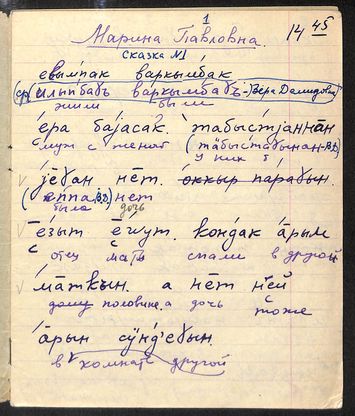 1
Марина Павловна. 14 45
Сказка №1
евымпак варкымбак
(ср. илыпбаъ варкымбаъ - Вера Демидовна)
жили были
ера баjасак? табыстjаннāн
муж с женой (тäбыстабынан-ВД)
у них
jеган нēт. оккыр парабын.
(еппа ВД) нет
была дочь
ēзыт ēwут. кондак āрым
отец мать спали в другой
мāткын. а нēт н̄ей
дому половине. а дочь тоже
āрын сӱнд'ебын.
в комнате другой